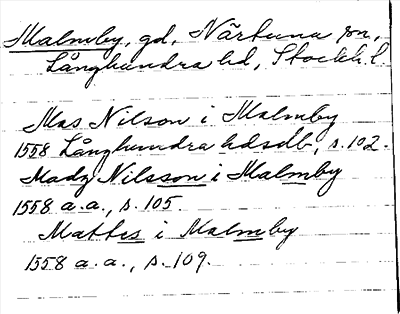 Malmby, gd, Närtuna sn,
Långhundra hd, Stockh. l.
Mas Nilson i Malmby
1558 Långhundra hdsdb, s. 102.
Madz Nilsson i Malmby
1558 a.a., s. 105.
Mattes i Malmby
1558 a.a., s. 109.